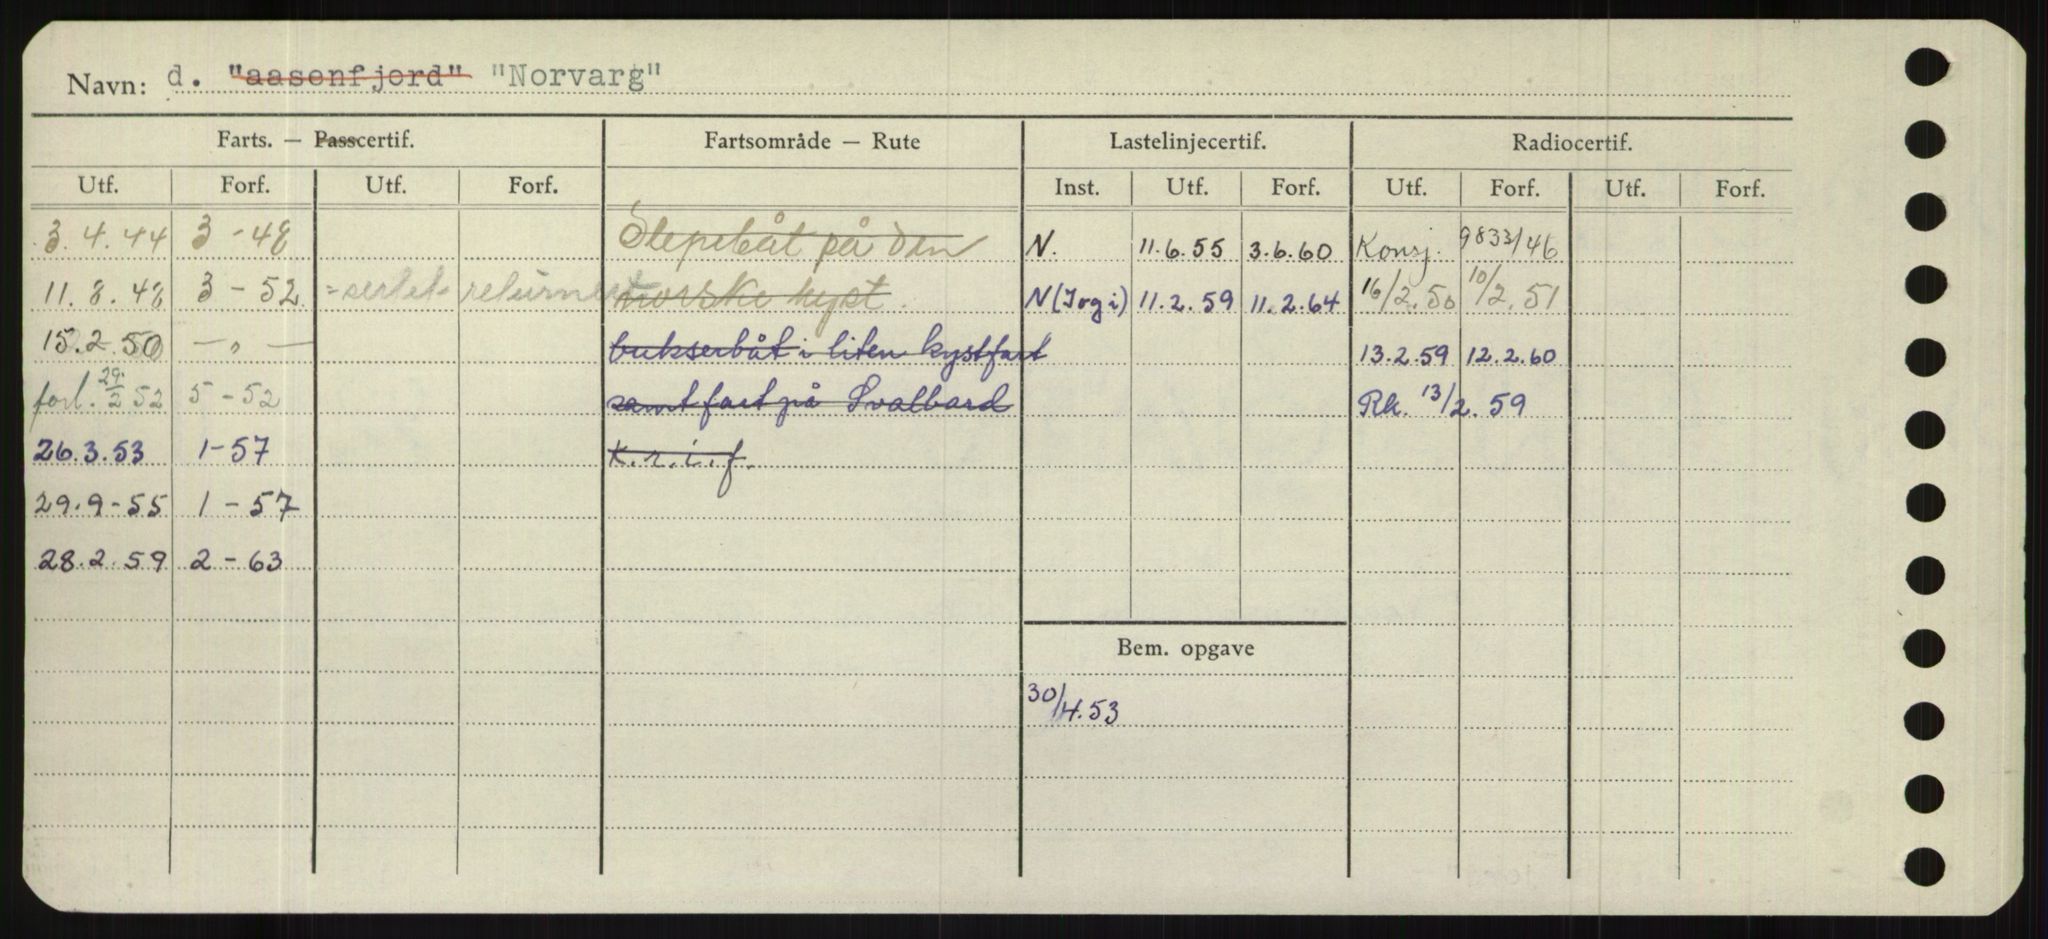 Navn: d. "aasenfjord" "Norvarg"
Farts. — Passcertif. Fartsområde — Rute Lastelinjecertif. Radiocertif.
Utf. Forf. Utf. Forf. Inst. Utf. Forf. Utf. Forf. Utf. Forf.
3.4.44 3-48 Slepebåt på den N. 11.6.55 3.6.60 Konsj. 9833/46
11.8.48 3-52 = sertet returnert norske kyst. N(Jrgi) 11.2.59 11.2.64 16/2.50 10/2.51
15.2.50 —"— bukserbåt i liten kystfart 13.2.59 12.2.60
forl. 29/2 52 5-52 samt fart på Svalbard Rk. 13/2.59
26.3.53 1-57 K.r.i.f.
29.9-55 1-57
28.2.59 2-63
Bem. opgave
30/4.53